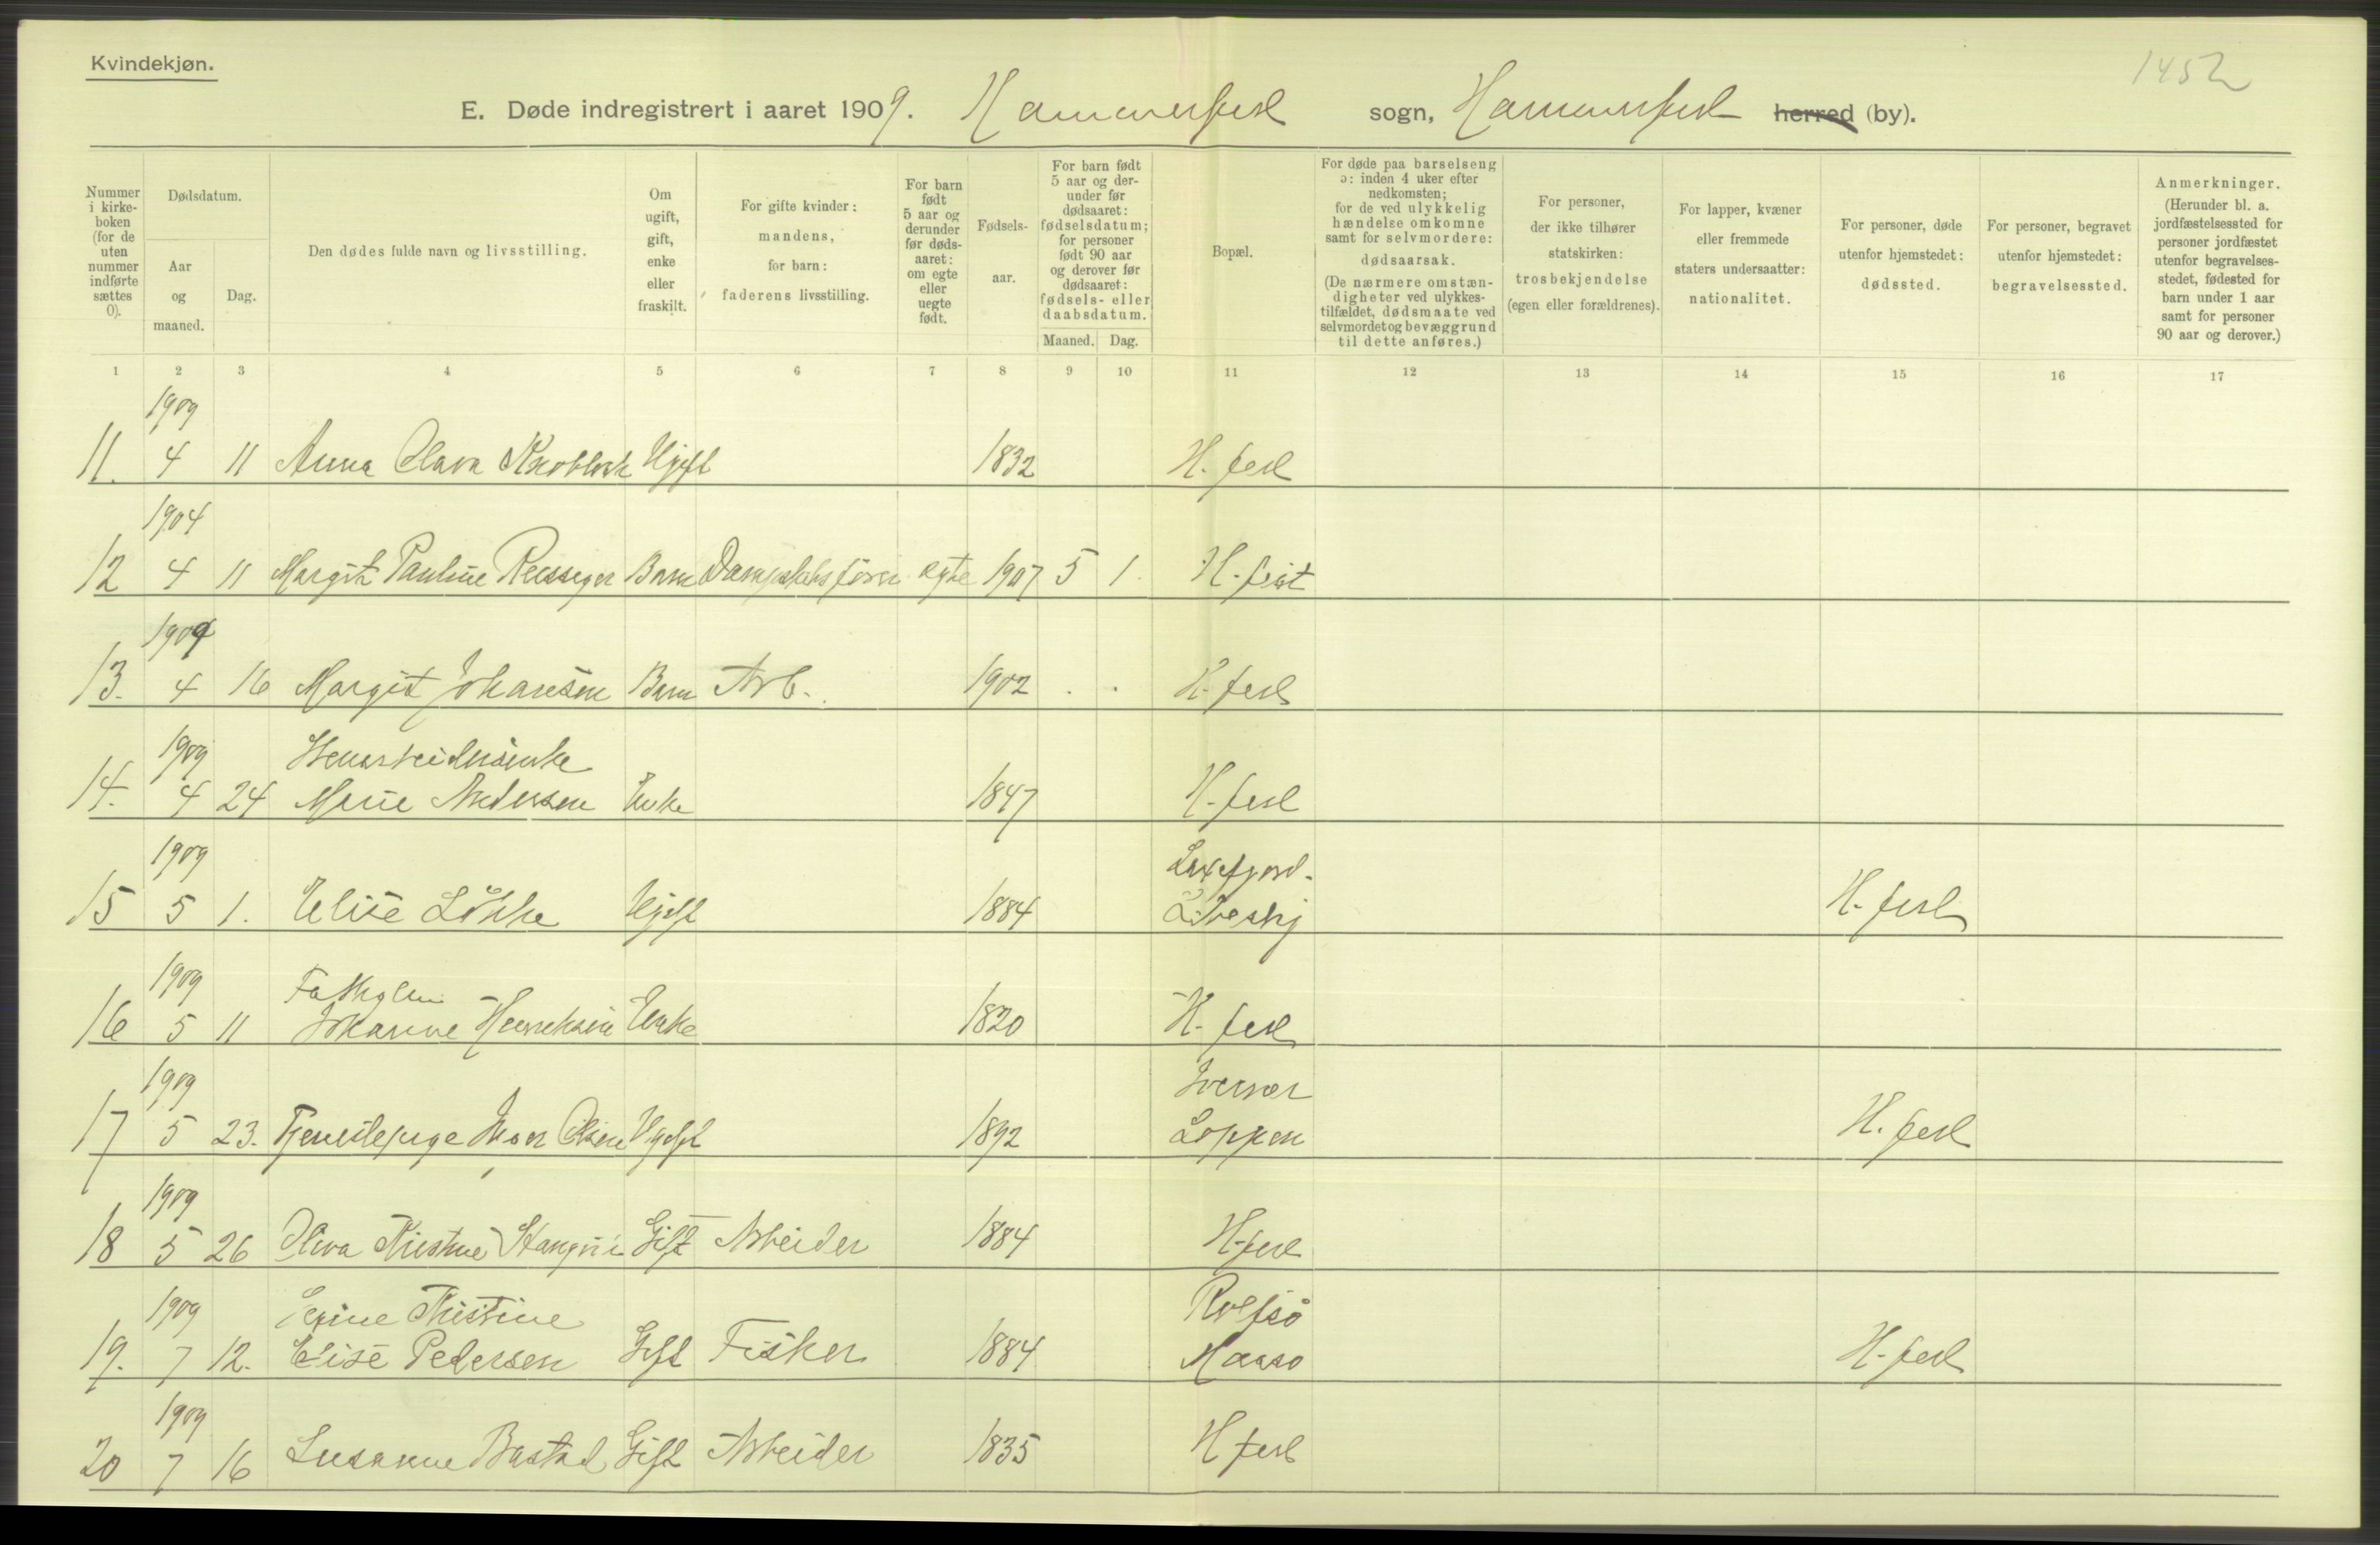 Kvindekjøn.
1452
E. Døde indregistrert i aaret 1909. Hammerfest sogn, Hammerfest herred (by).
Nummer i kirke-boken (for de uten nummer indførte sættes 0).
Dødsdatum.
Aar og maaned.
Dag.
Den dødes fulde navn og livsstilling.
Om ugift, gift, enke eller fraskilt.
For gifte kvinder: mandens, for barn: faderens livsstilling.
For barn født 5 aar og derunder før døds-aaret: om egte eller uegte født.
Fødsels-aar.
For barn født 5 aar og der-under før dødsaaret: fødselsdatum; for personer født 90 aar og derover før dødsaaret: fødsels- eller daabsdatum.
Maaned. Dag.
Bopæl.
For døde paa barselseng ɔ: inden 4 uker efter nedkomsten; for de ved ulykkelig hændelse omkomne samt for selvmordere: dødsaarsak. (De nærmere omstæn-digheter ved ulykkes-tilfældet, dødsmaate ved selvmordet og bevæggrund til dette anføres.)
For personer, der ikke tilhører statskirken: trosbekjendelse (egen eller forældrenes).
For lapper, kvæner eller fremmede staters undersaatter: nationalitet.
For personer, døde utenfor hjemstedet: dødssted.
For personer, begravet utenfor hjemstedet: begravelsessted.
Anmerkninger. (Herunder bl. a. jordfæstelsessted for personer jordfæstet utenfor begravelses-stedet, fødested for barn under 1 aar samt for personer 90 aar og derover.)
1 2 3 4 5 6 7 8 9 10 11 12 13 14 15 16 17
1909
11. 4 11 Anna Olava Knoblock Ugift 1832 H.fest
1904
12 4 11 Margit Pauline Barn Dampskibsfører egte 1907 5 1. H-fest
1909
13. 4 16 Margit Johansen Barn Arb. 1902 . . H.fest
1909
14. 4 24 Marie Andersen Enke 1847 H-fest
1909 Laxefjord.
15 5 1. Elise Løkke Ugift 1884 H-fest
1909
16 5 11 Johanne Henriksen Enke 1820 H.fest
1909
17 5 23. Tjenestepige Olsen Ugift 1892 Loppen H.fest
1909
18 5 26 Oliva Kristine Gift Arbeider 1884 H-fest
1909 Kristine Rolfsø
19. 7 12. Elise Pedersen Gift Fisker 1884 Maasø H-fest
1909
20 7 16 Susanne Båstad Gift Arbeider 1835 H fest